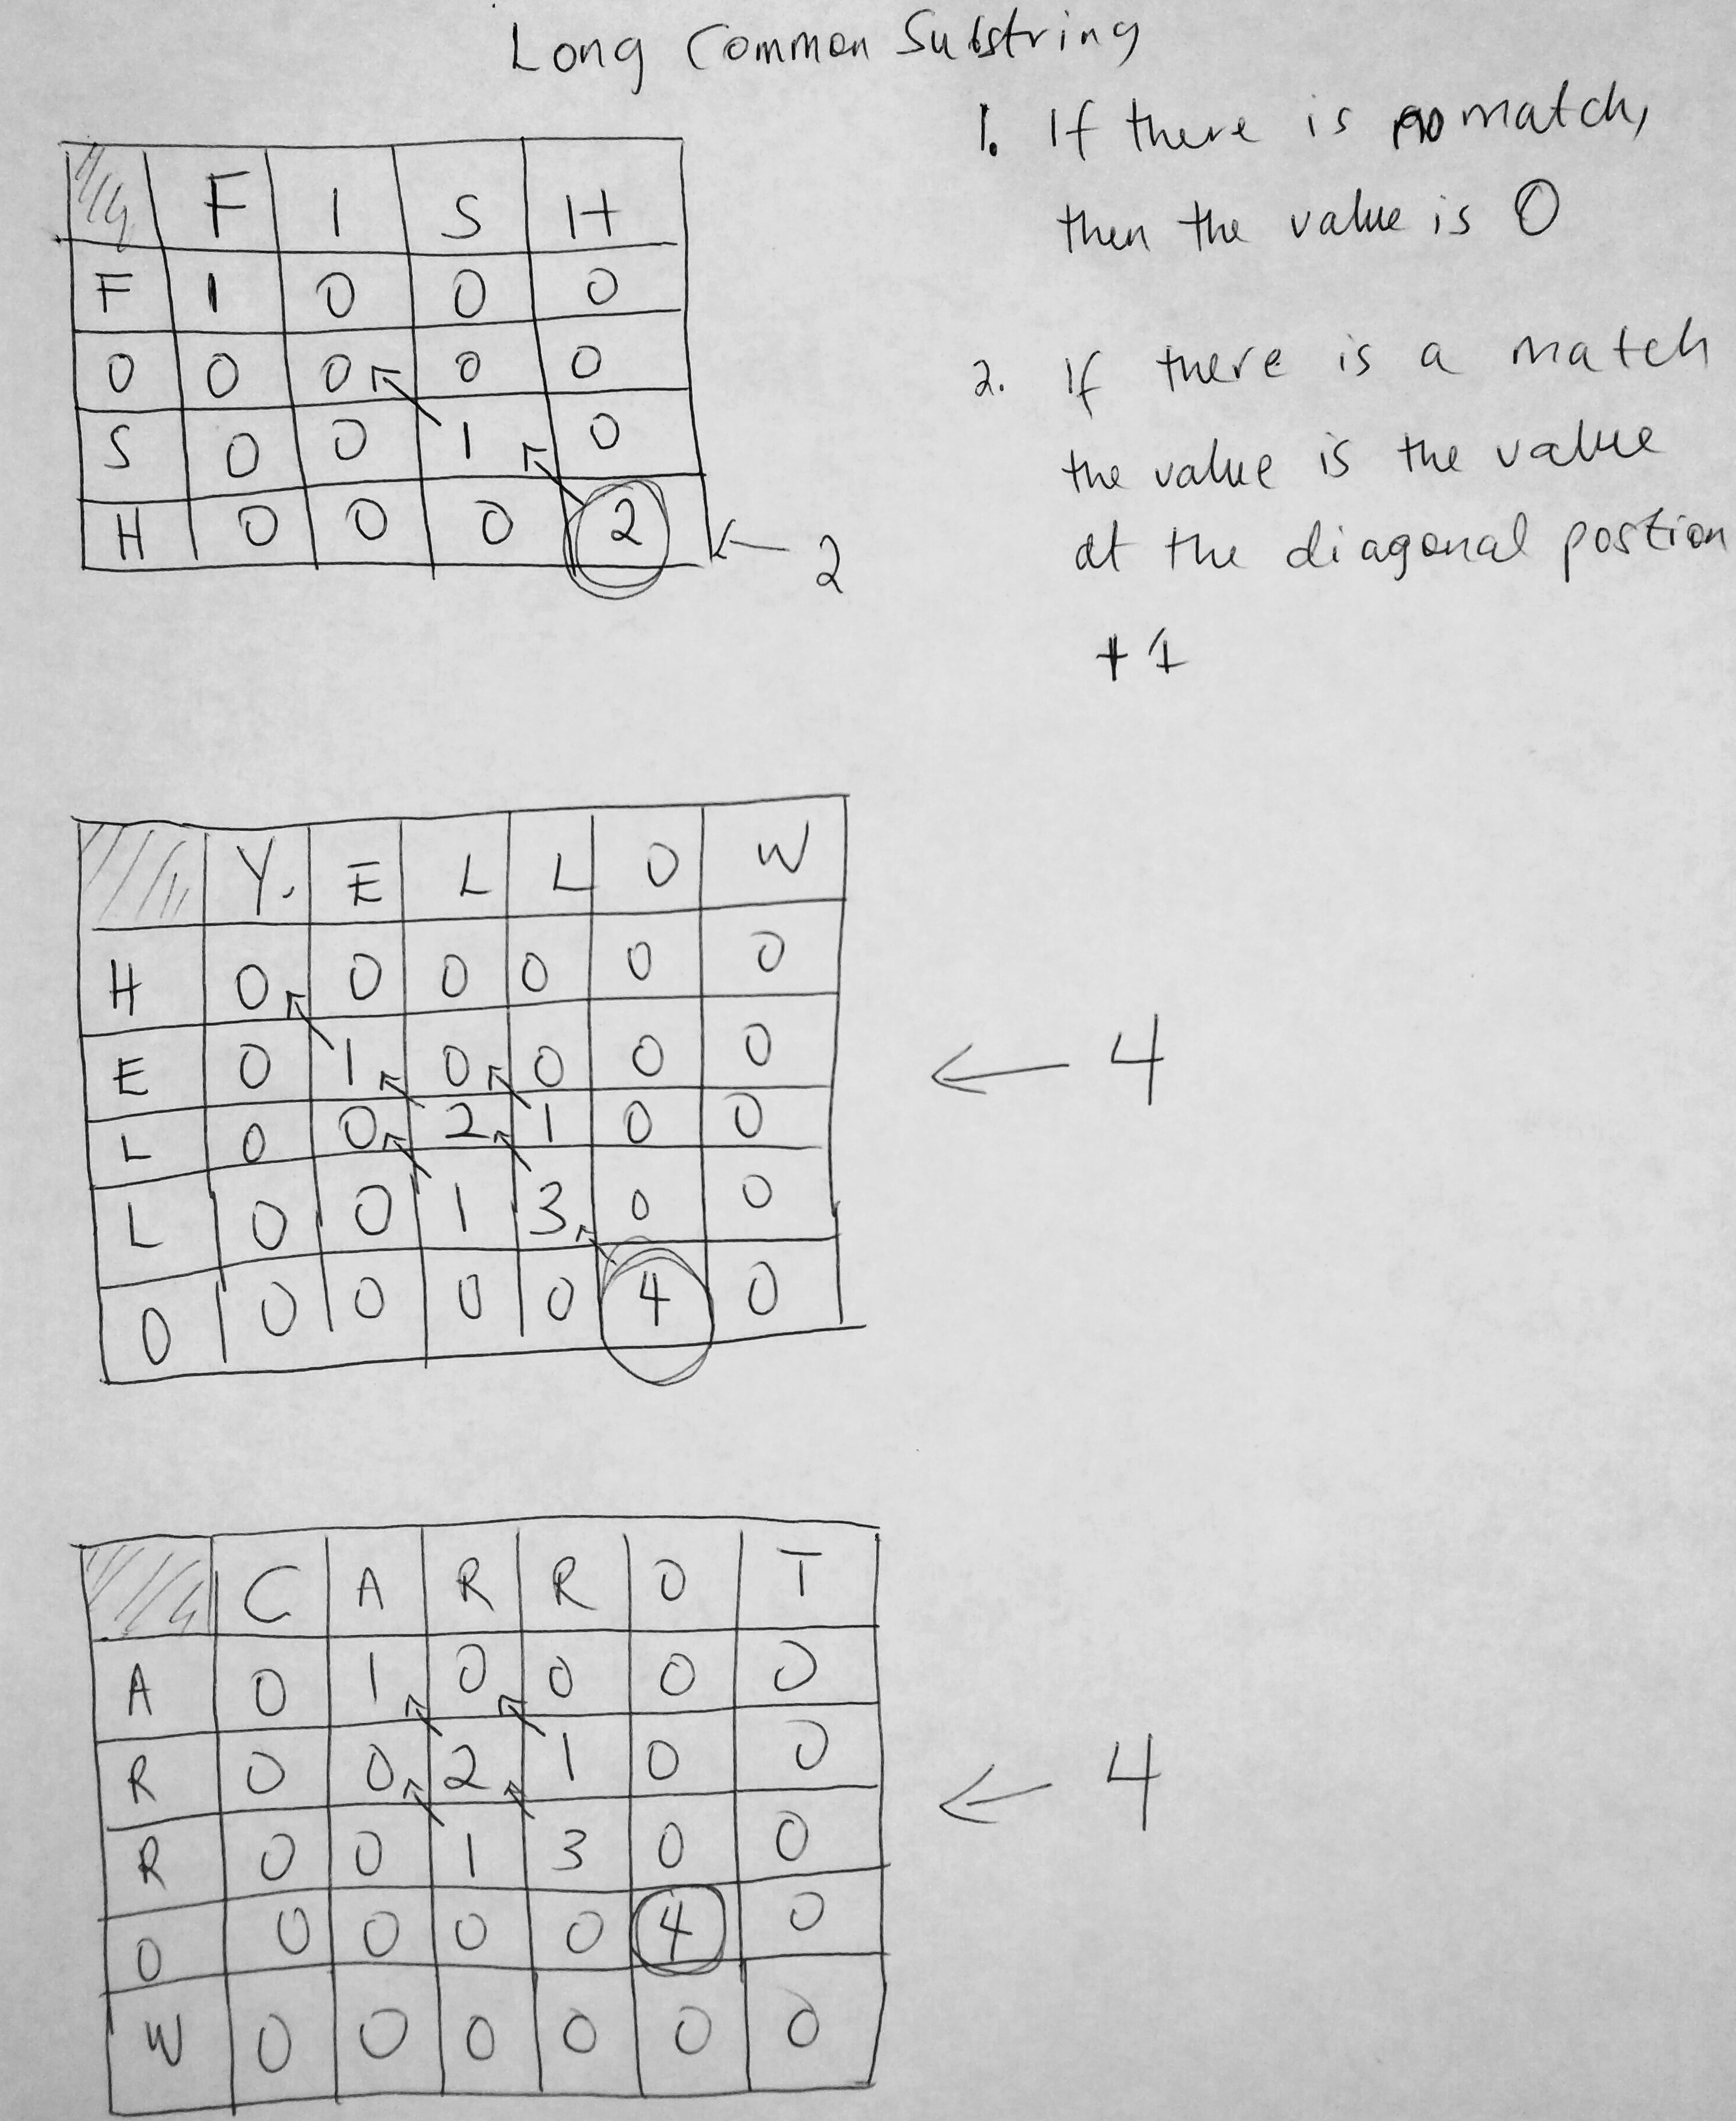 Long Common Substring
1. If there is no match,
then the value is 0
2. If there is a match
the value is the value
at the diagonal postion
+1
F I S H
F 1 0 0 0
O 0 0 0 0
S 0 0 1 0
H 0 0 0 2 ← 2
Y. E L L O W
H 0 0 0 0 0 0
E 0 1 0 0 0 0
L 0 0 2 1 0 0
L 0 0 1 3 0 0
O 0 0 0 0 4 0
← 4
C A R R O T
A 0 1 0 0 0 0
R 0 0 2 1 0 0
R 0 0 1 3 0 0
O 0 0 0 0 4 0
W 0 0 0 0 0 0
← 4